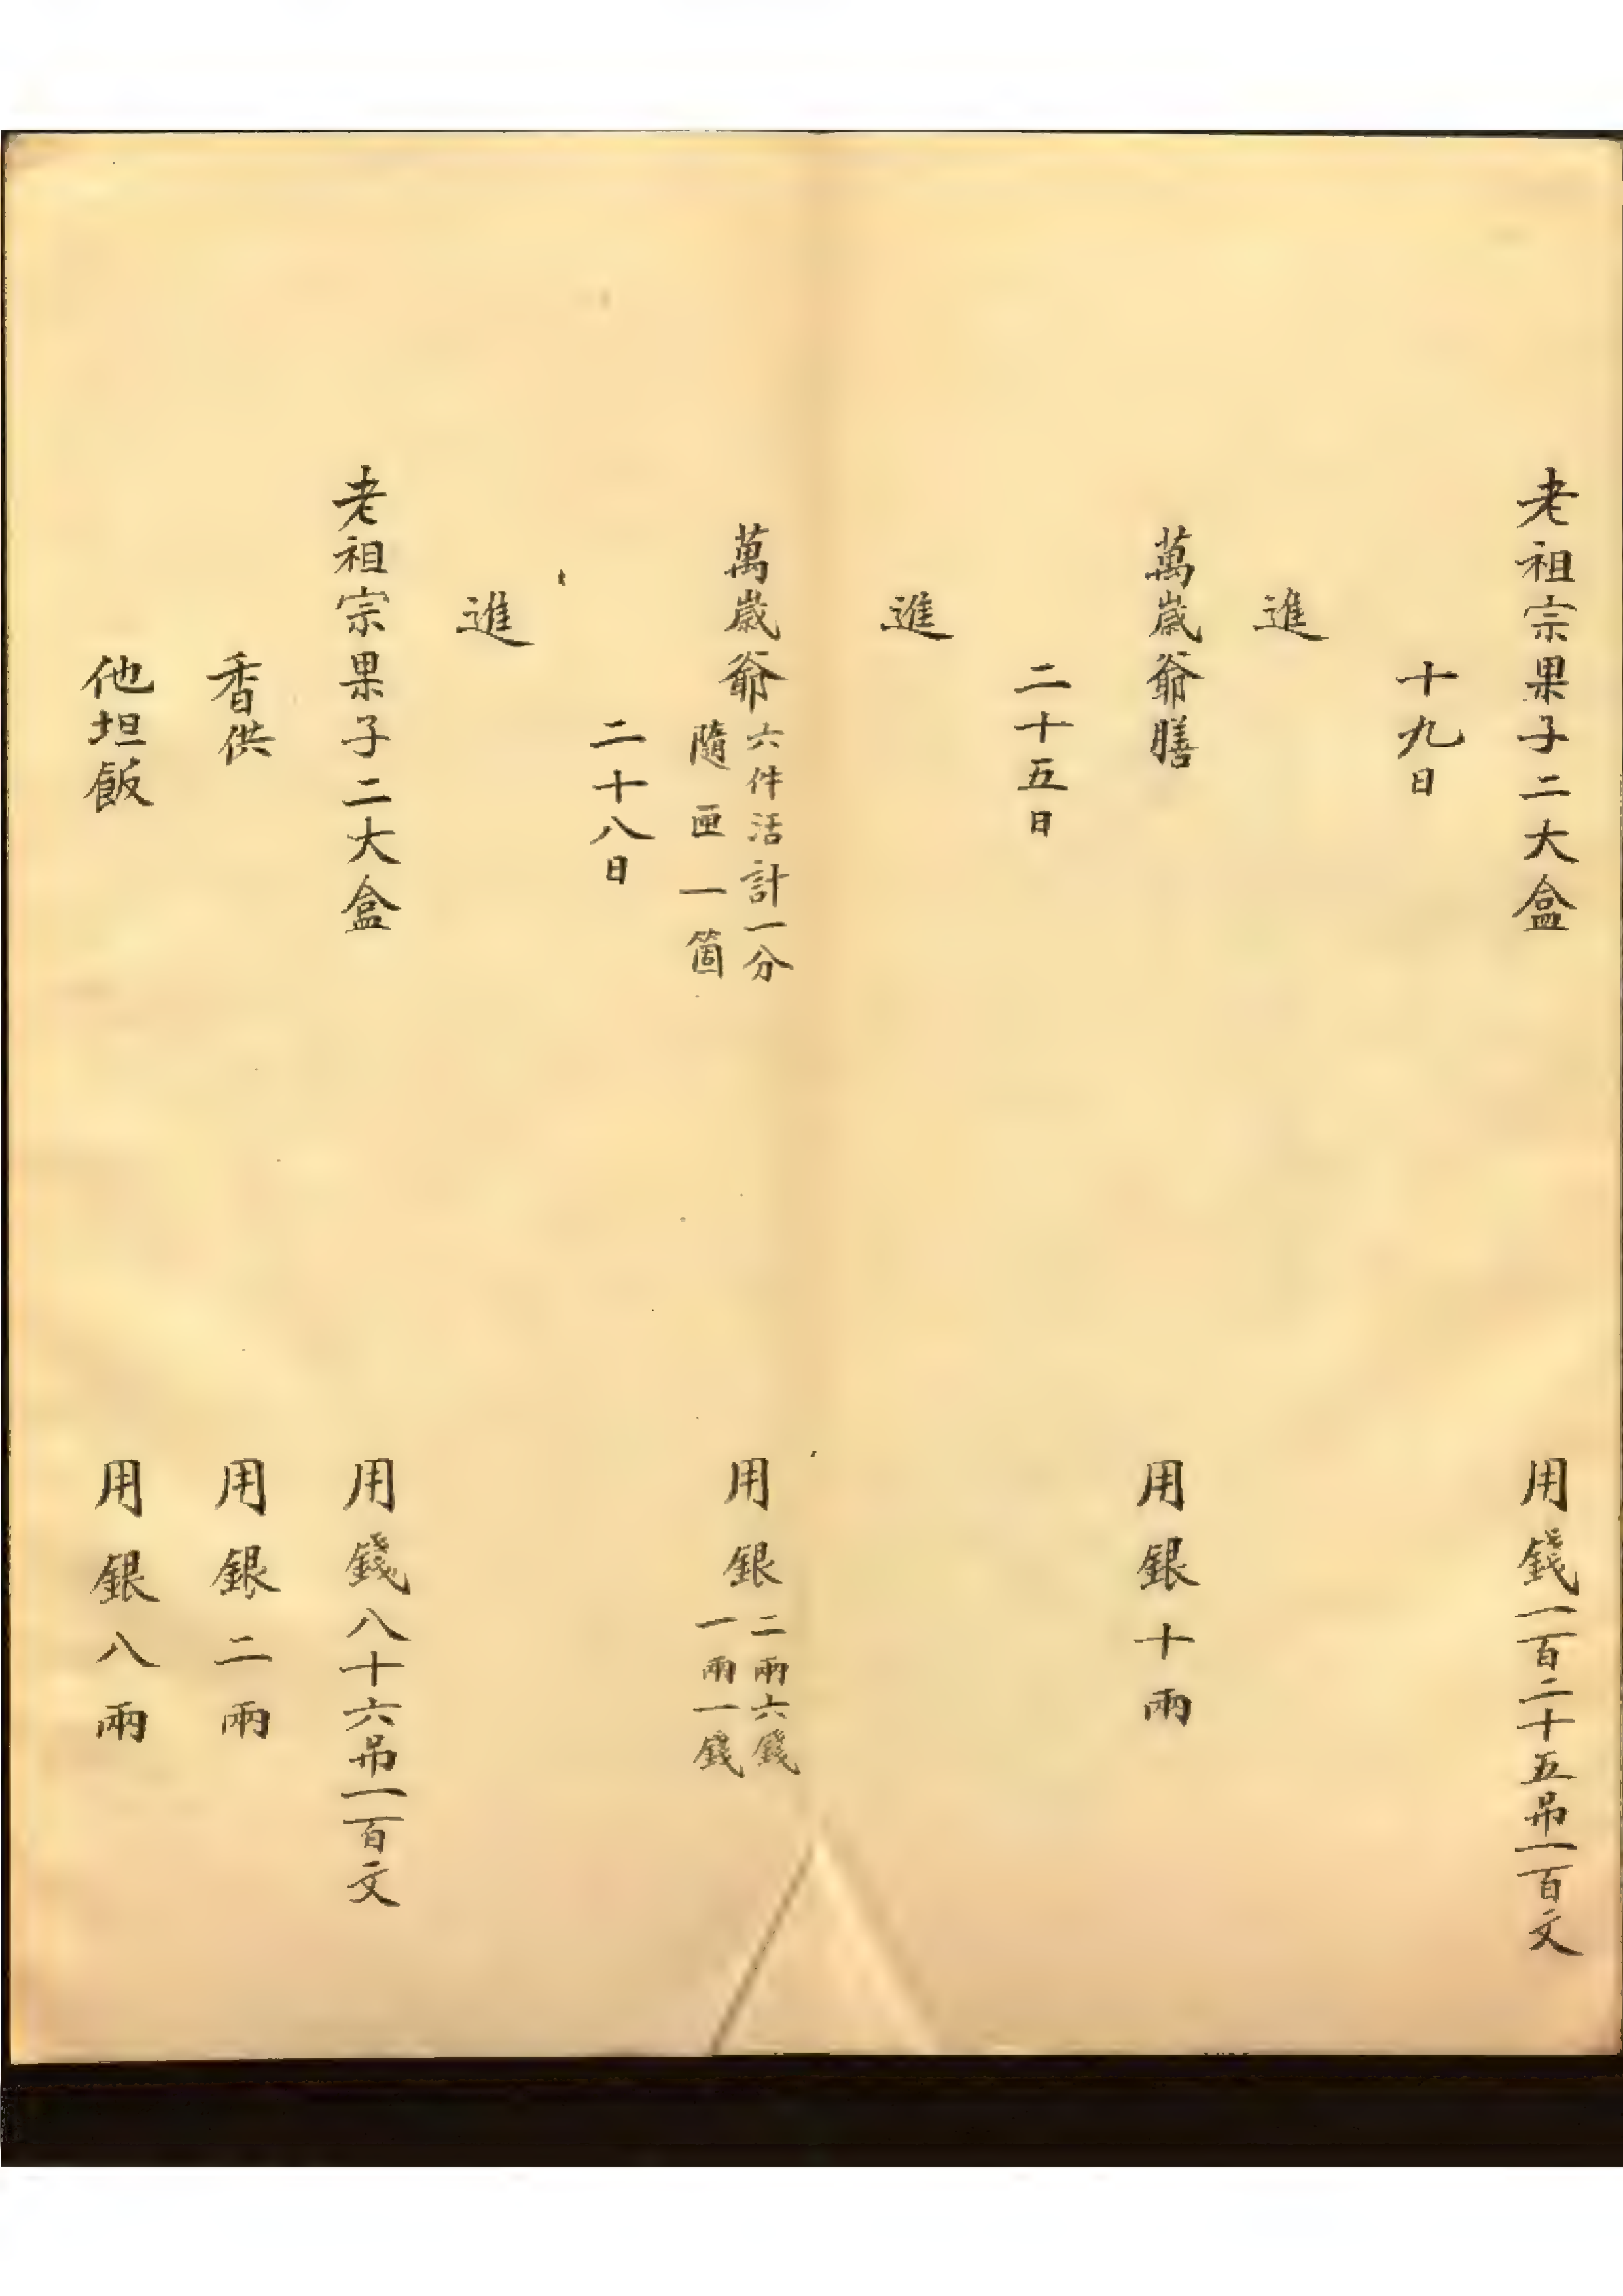 老祖宗果子二大盒 用錢一百二十五吊一百文
十九日
進
萬歲爺膳 用銀十兩
二十五日
進
萬歲爺六件活計一分 用銀二兩六錢
隨匣一箇 一兩一錢
二十八日
進
老祖宗果子二大盒 用錢八十六吊一百文
香供 用銀二兩
他坦飯 用銀八兩